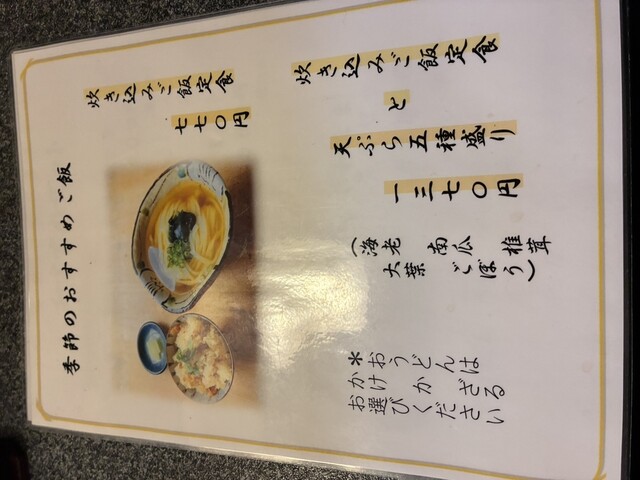 季節のおすすめご飯
炊き込みご飯定食
七七〇円
炊き込みご飯定食
と
天ぷら五種盛り
一三七〇円
(海老 南瓜 椎茸
大葉 ごぼう)
＊おうどんは
かけかざる
お選びください